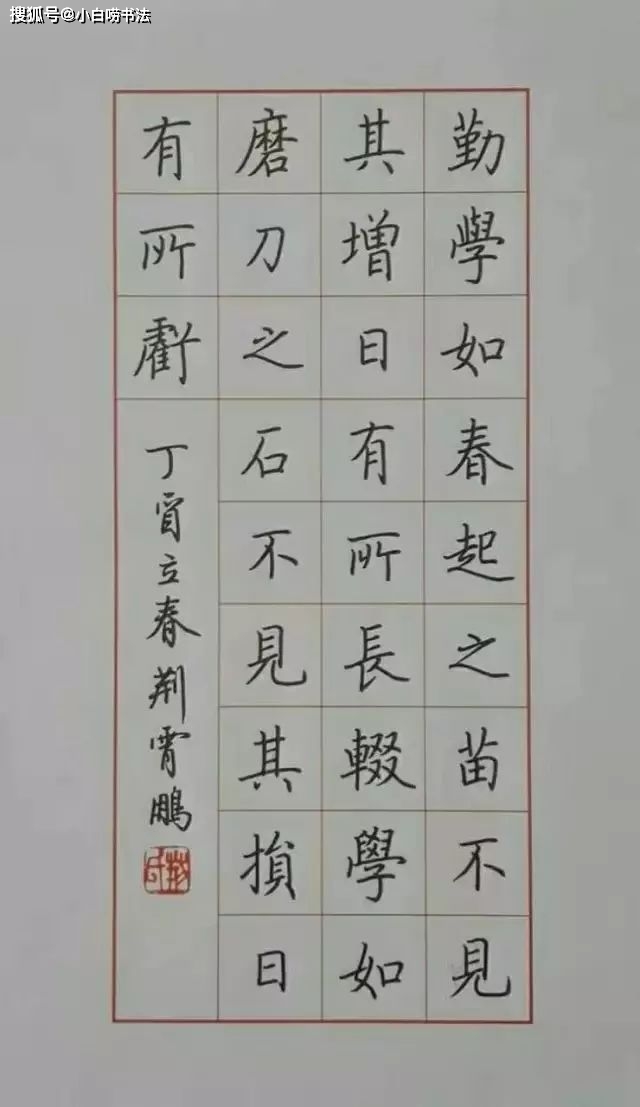 搜狐号@小白唠书法
勤學如春起之苗不見
其增日有所長輟學如
磨刀之石不見其損日
有所虧
丁酉立春荆霄鵬